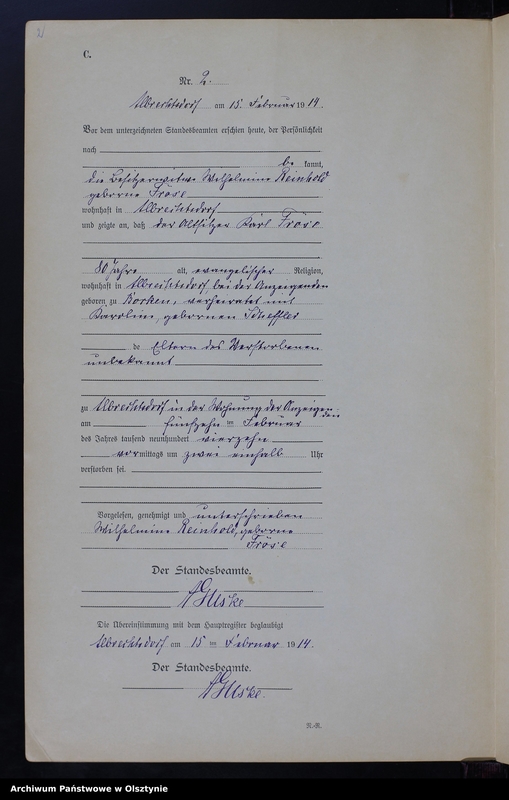 C.
Nr. 2.
Albrechtsdorf am 15. Februar 1914.
Vor dem unterzeichneten Standesbeamten erschien heute, der Persönlichkeit
nach
be kannt,
die Besitzerwitwe Wilhelmine Reinhold
geborne Fröse
wohnhaft in Albrechtsdorf
und zeigte an, daß der Altsitzer Karl Fröse
80 Jahre alt, evangelischer Religion,
wohnhaft in Albrechtsdorf, bei der Anzeigenden
geboren zu Borken, verheiratet mit
Karoline, gebornen Scheffler
de Eltern des Verstorbenen
unbekannt
zu Albrechtsdorf in der Wohnung der Anzeigenden
am fünfzehn ten Februar
des Jahres tausend neunhundert vierzehn
vor mittags um zwei einhalb Uhr
verstorben sei.
Vorgelesen, genehmigt und unterschrieben
Wilhelmine Reinhold, geborne
Fröse
Der Standesbeamte.
Die Übereinstimmung mit dem Hauptregister beglaubigt
Albrechtsdorf am 15 ten Februar 1914.
Der Standesbeamte.
Archiwum Państwowe w Olsztynie